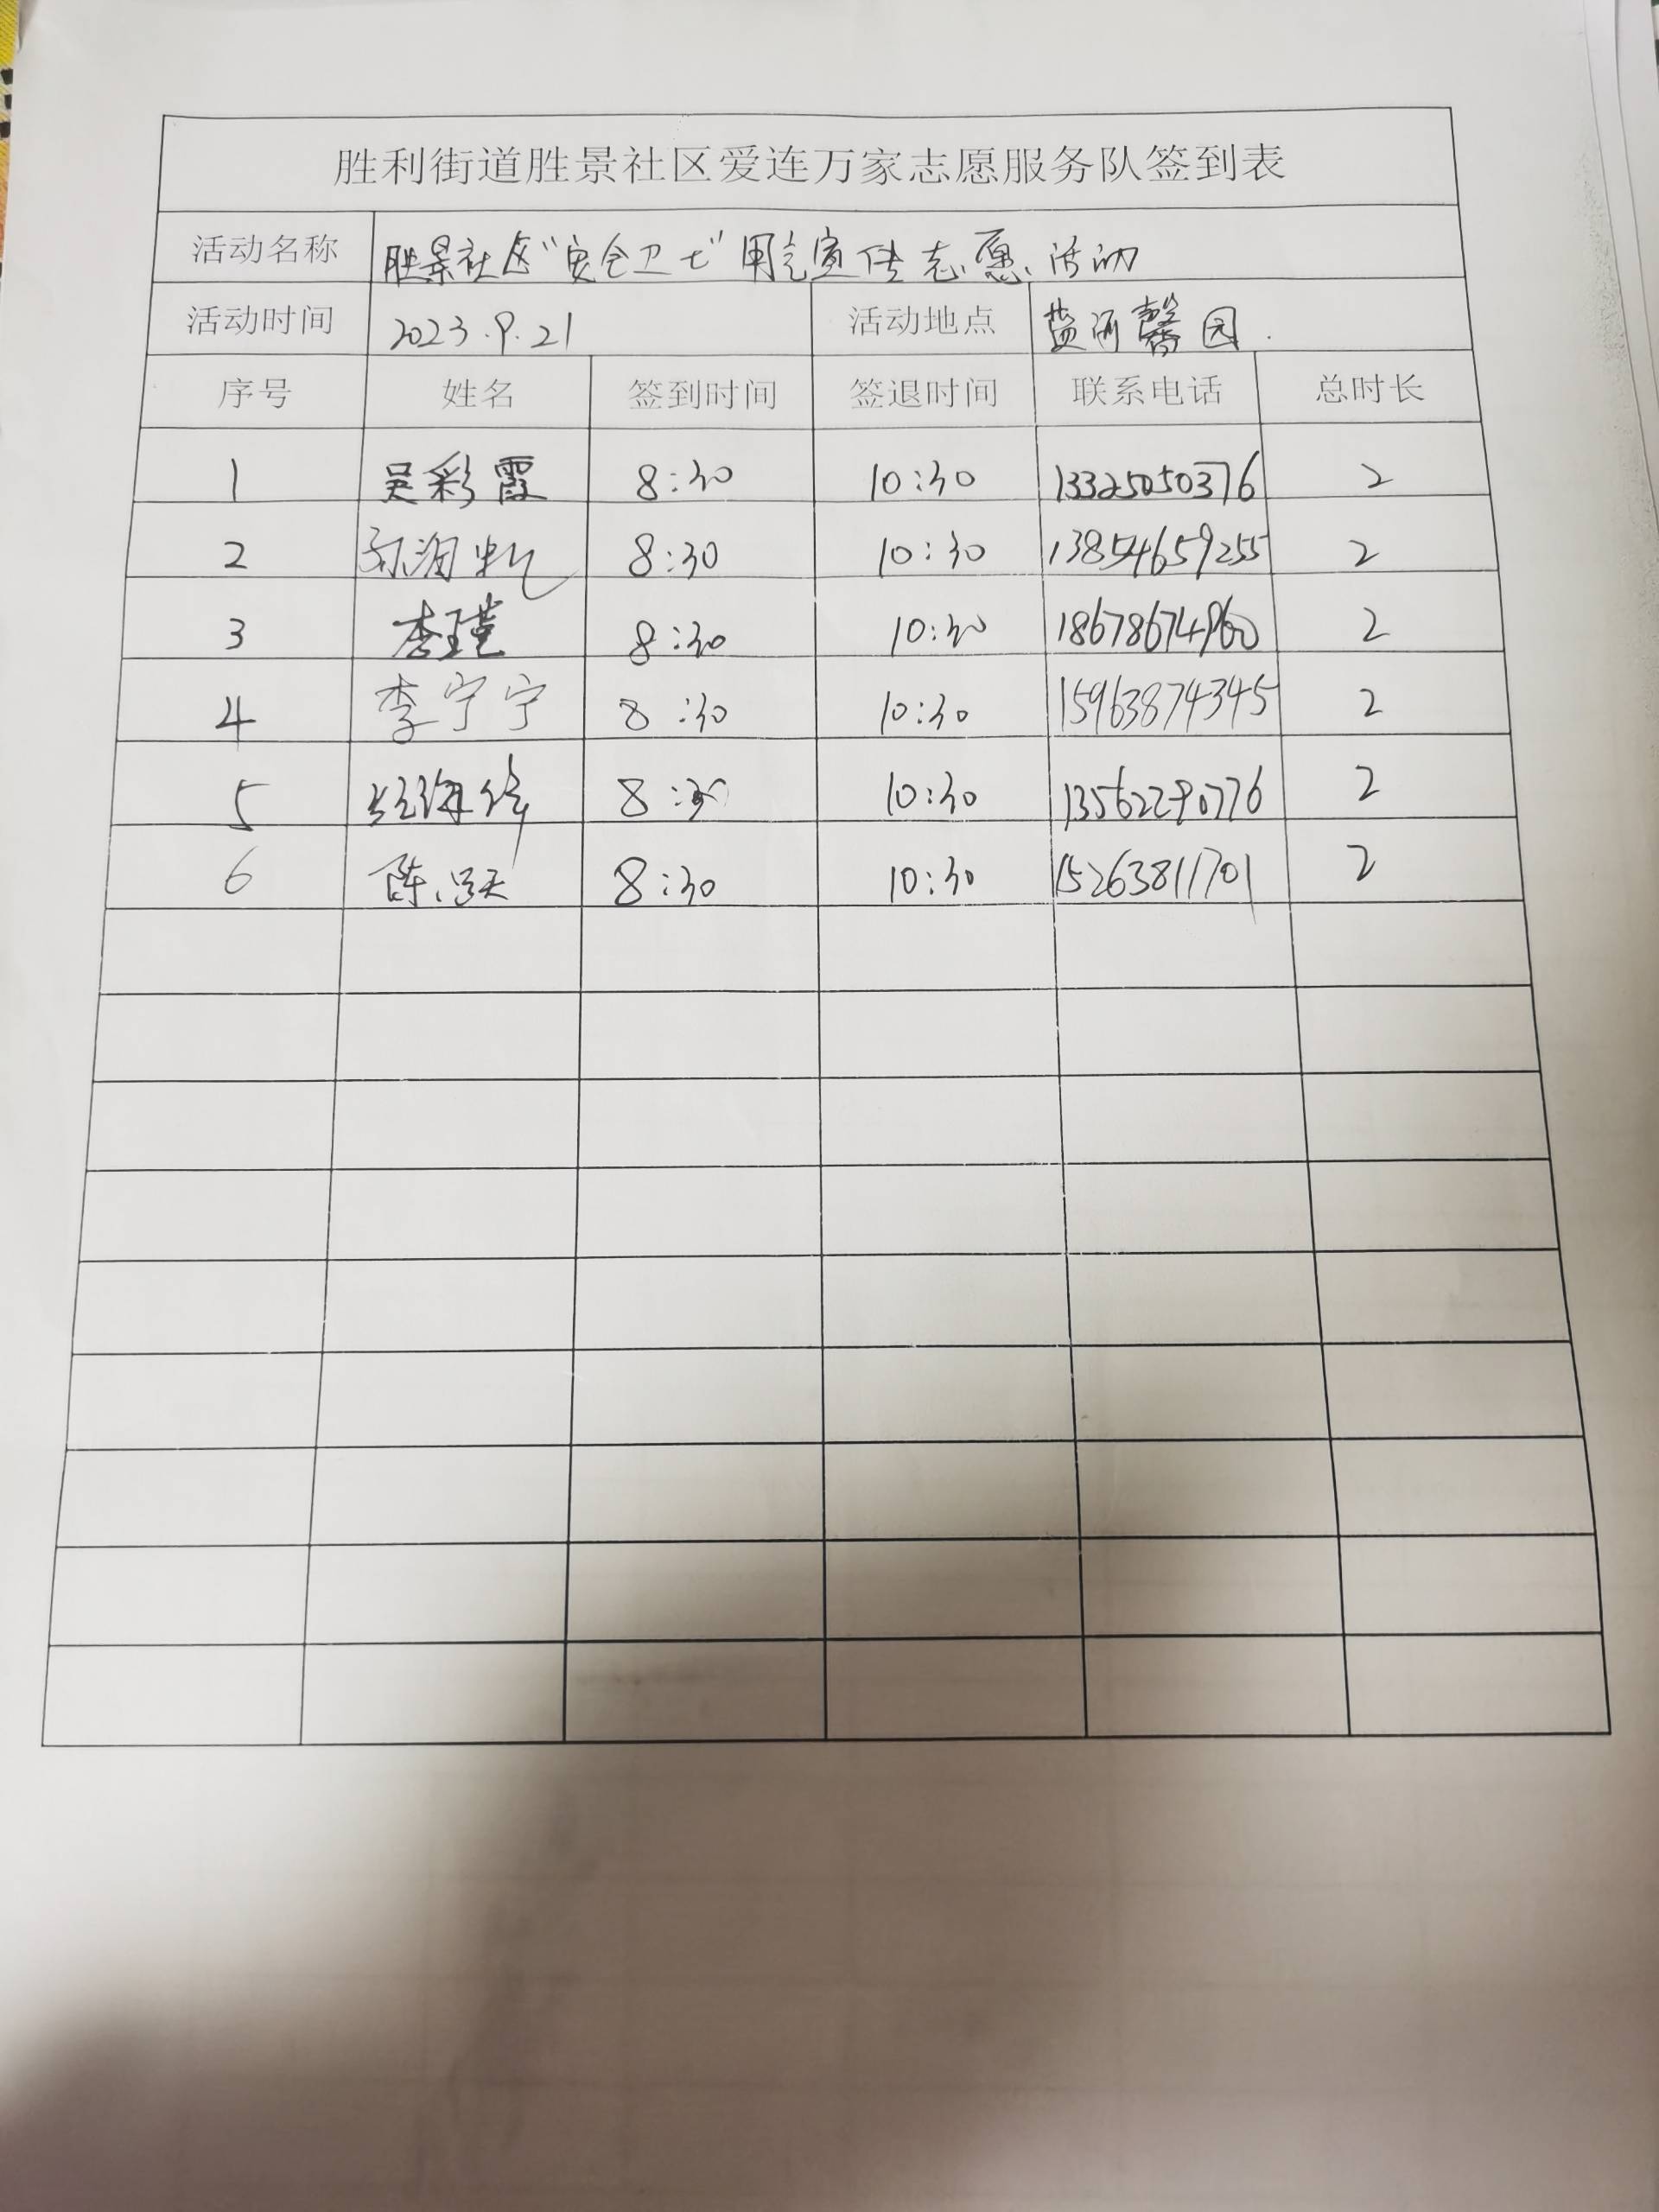 胜利街道胜景社区爱连万家志愿服务队签到表
活动名称 胜景社区“安全卫士”用气宣传志愿活动
活动时间 2023.9.21 活动地点 盐河馨园.
序号 姓名 签到时间 签退时间 联系电话 总时长
1 吴彩霞 8:30 10:30 13325050376 2
2 8:30 10:30 13854659255 2
3 李瑾 8:30 10:30 18678674960 2
4 李宁宁 8:30 10:30 15963874345 2
5 8:30 10:30 13562290776 2
6 陈 8:30 10:30 15263811701 2